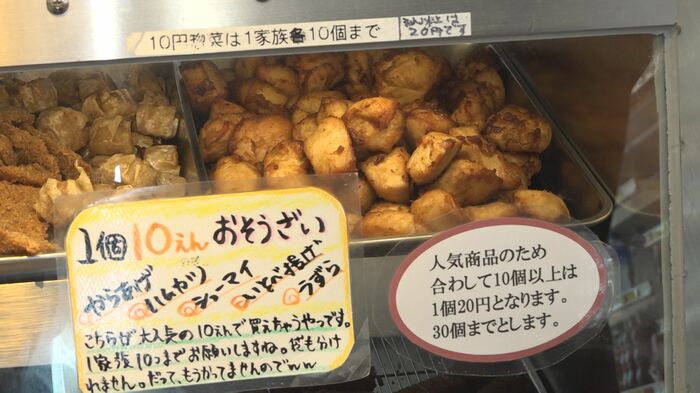 10円惣菜は1家族各10個まで
20円です
1個10えん おそうざい
からあげ
シューマイ
うずら
こちらが大人気の10えんで買えちゃうやつです。
1家族10コまでお願いしますね。袋も分け
れません。だって、もうかってませんのでww
人気商品のため
合わして10個以上は
1個20円となります。
30個までとします。